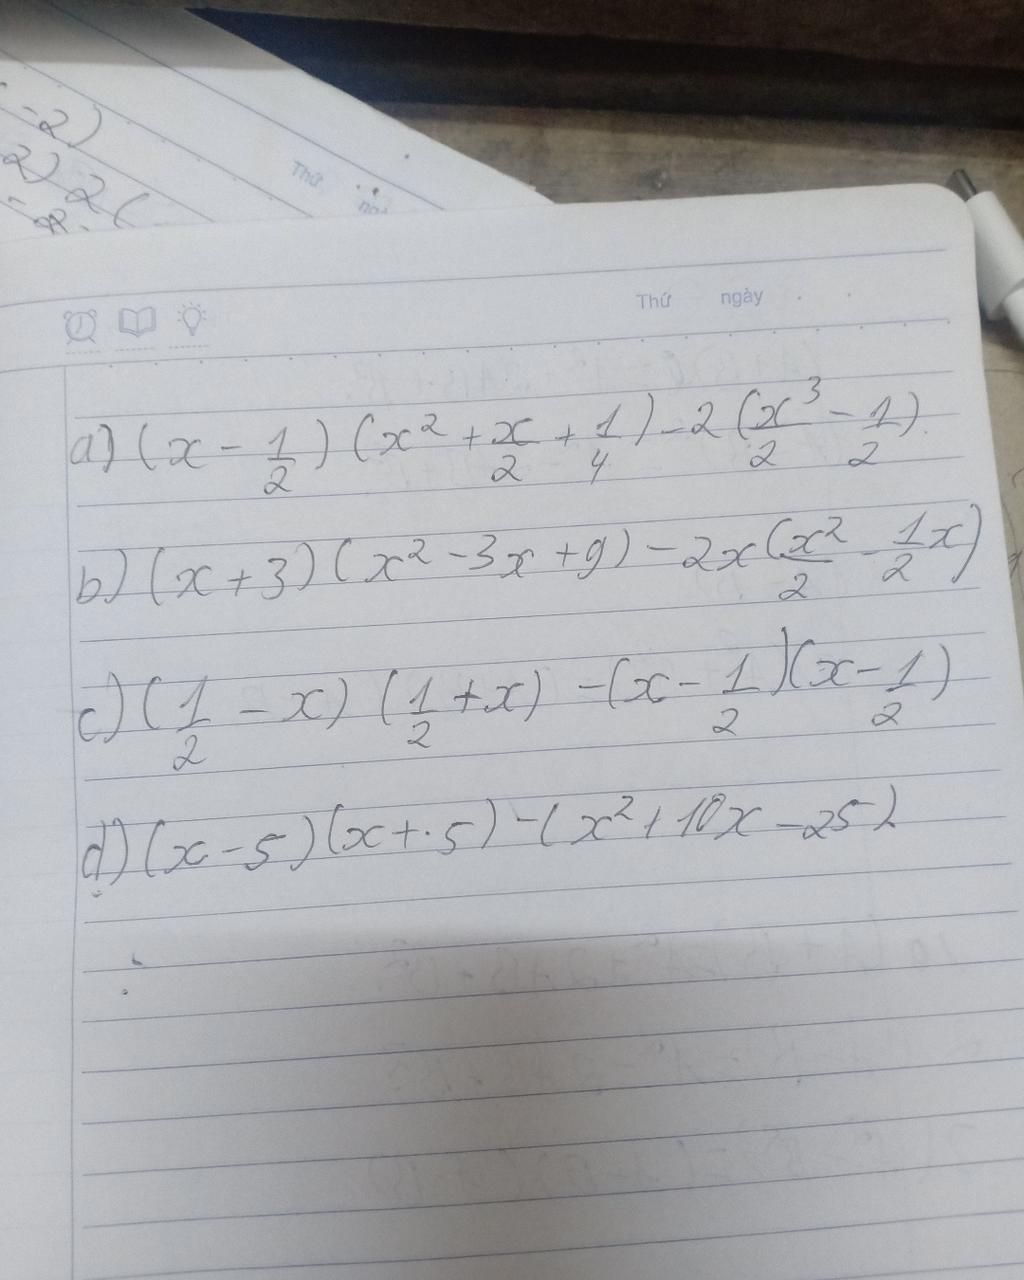 -2)
2) 2(
Thứ
Thứ ngày
a) (x - 1/2) (x² + x/2 + 1/4) - 2 (x³/2 - 1/2)
b) (x + 3) (x² - 3x + 9) - 2x (x²/2 - 1/2 x)
c) (1/2 - x) (1/2 + x) - (x - 1/2) (x - 1/2)
d) (x - 5) (x + 5) - (x² + 10x - 25)